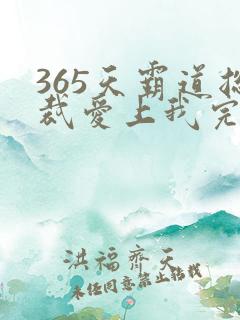 365天霸道总
裁爱上我完
洪福齐天
未经同意禁止转载